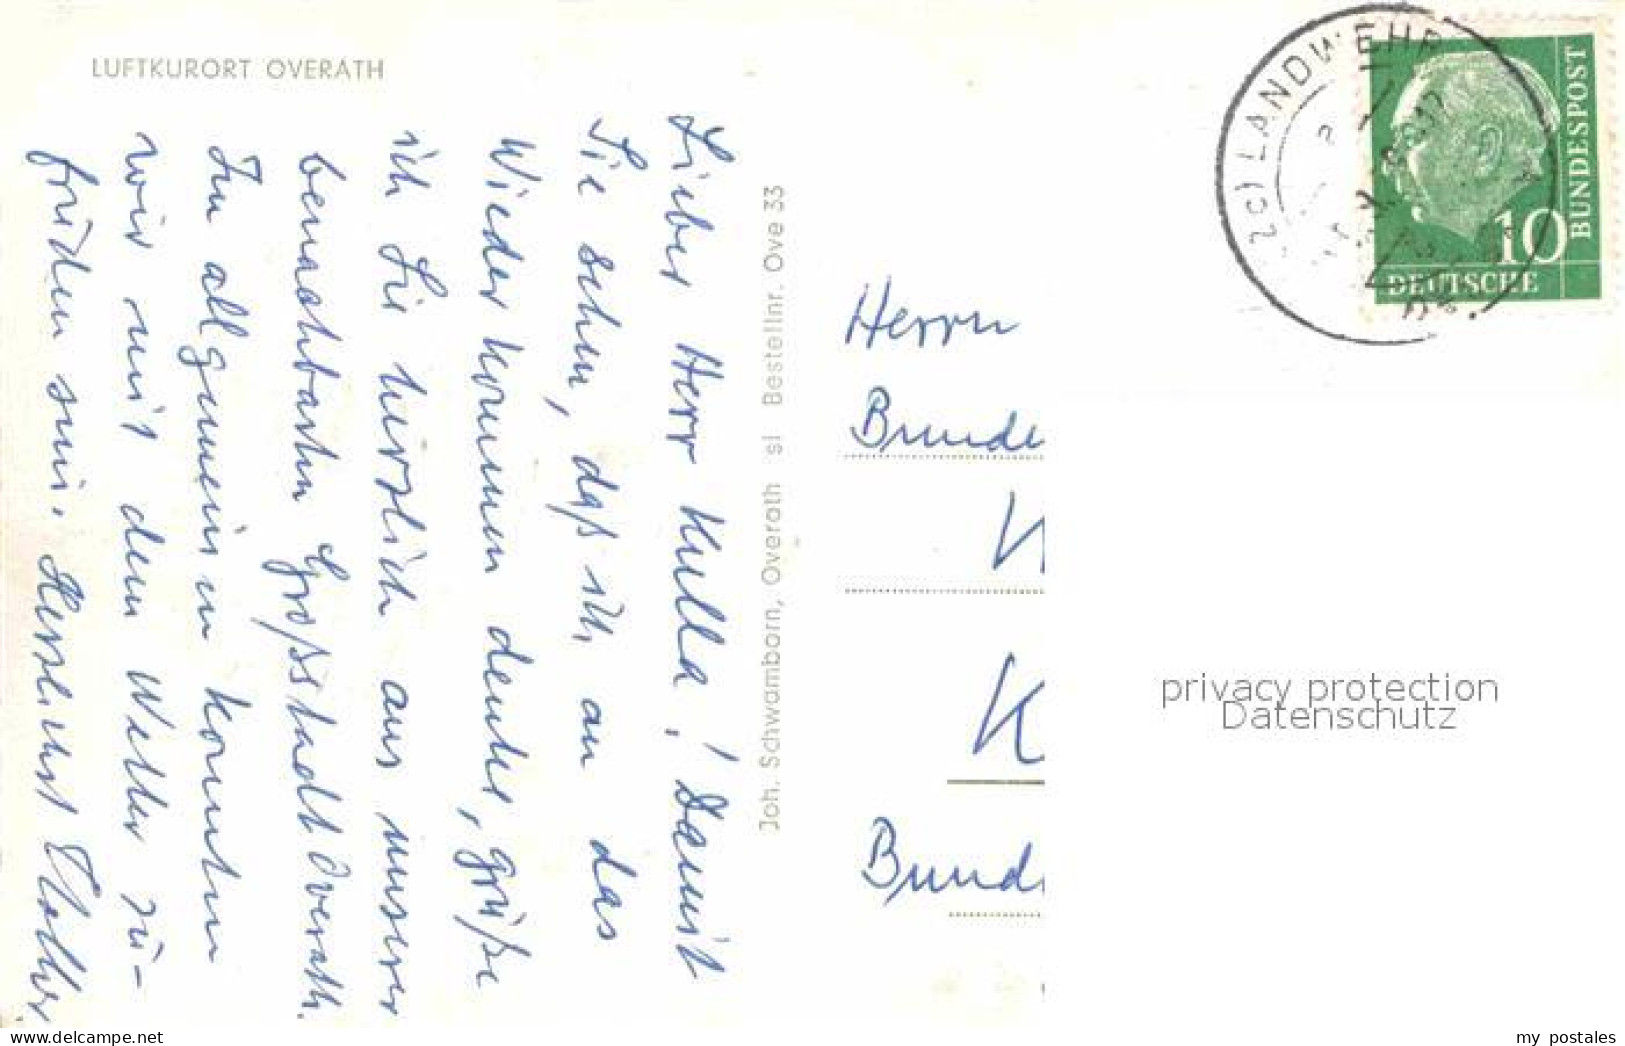 LUFTKURORT OVERATH
Lieber Herr Kulla! Damit
Sie sehen, daß ich an das
Wiederkommen denke, grüße
ich Sie herzlich aus unserer
benachbarten Großstadt Overath.
Im allgemeinen konnten
wir mit dem Wetter zu-
frieden sein. Herzlichst
Joh. Schwamborn, Overath sl Bestellnr. Ove 33
Herrn
Bunde
K
Bund
LANDWEHR
10
DEUTSCHE
BUNDESPOST
privacy protection
Datenschutz
www.delcampe.net
my_postales